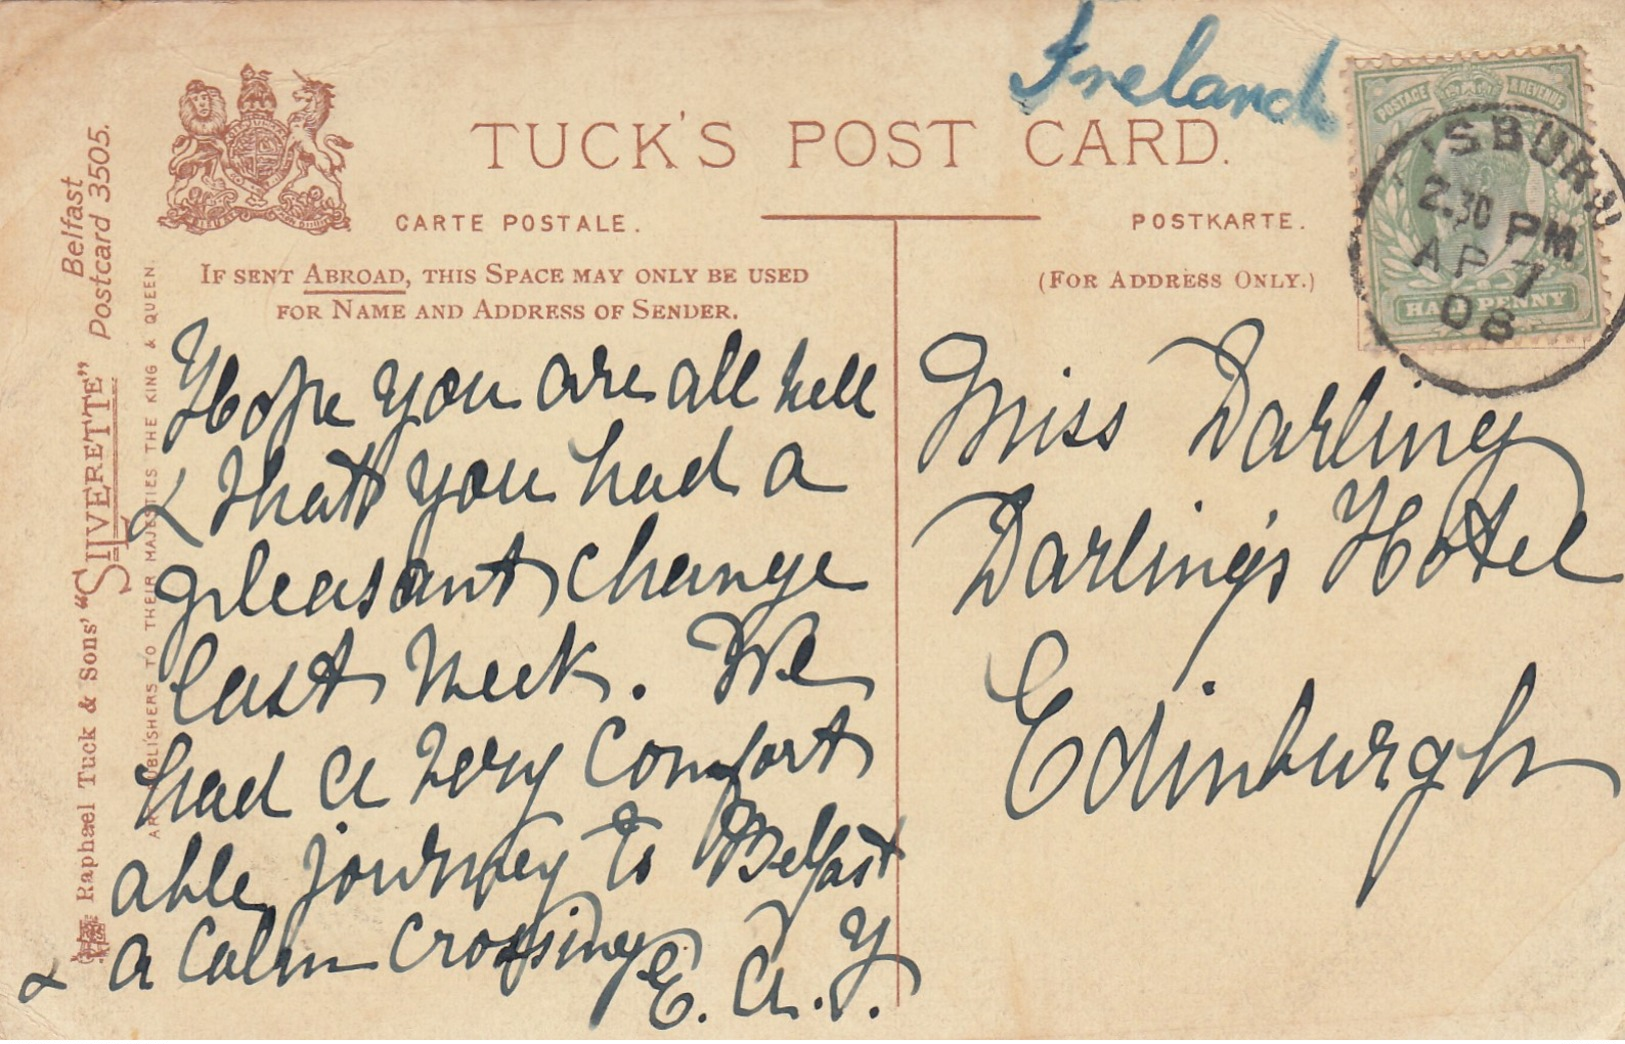 Ireland
TUCK'S POST CARD.
CARTE POSTALE.
POSTKARTE.
IF SENT ABROAD, THIS SPACE MAY ONLY BE USED
FOR NAME AND ADDRESS OF SENDER.
(FOR ADDRESS ONLY.)
POSTAGE & REVENUE
HALFPENNY
ISBURN
2.30 PM
AP 7
08
Hope you are all well
& that you had a
pleasant change
last week. We
had a very comfort
able journey to Belfast
& a calm crossing
E. A. Y.
Miss Darling
Darling's Hotel
Edinburgh
Raphael Tuck & Sons' "SILVERETTE"
Belfast
Postcard 3505.
ART PUBLISHERS TO THEIR MAJESTIES THE KING & QUEEN.